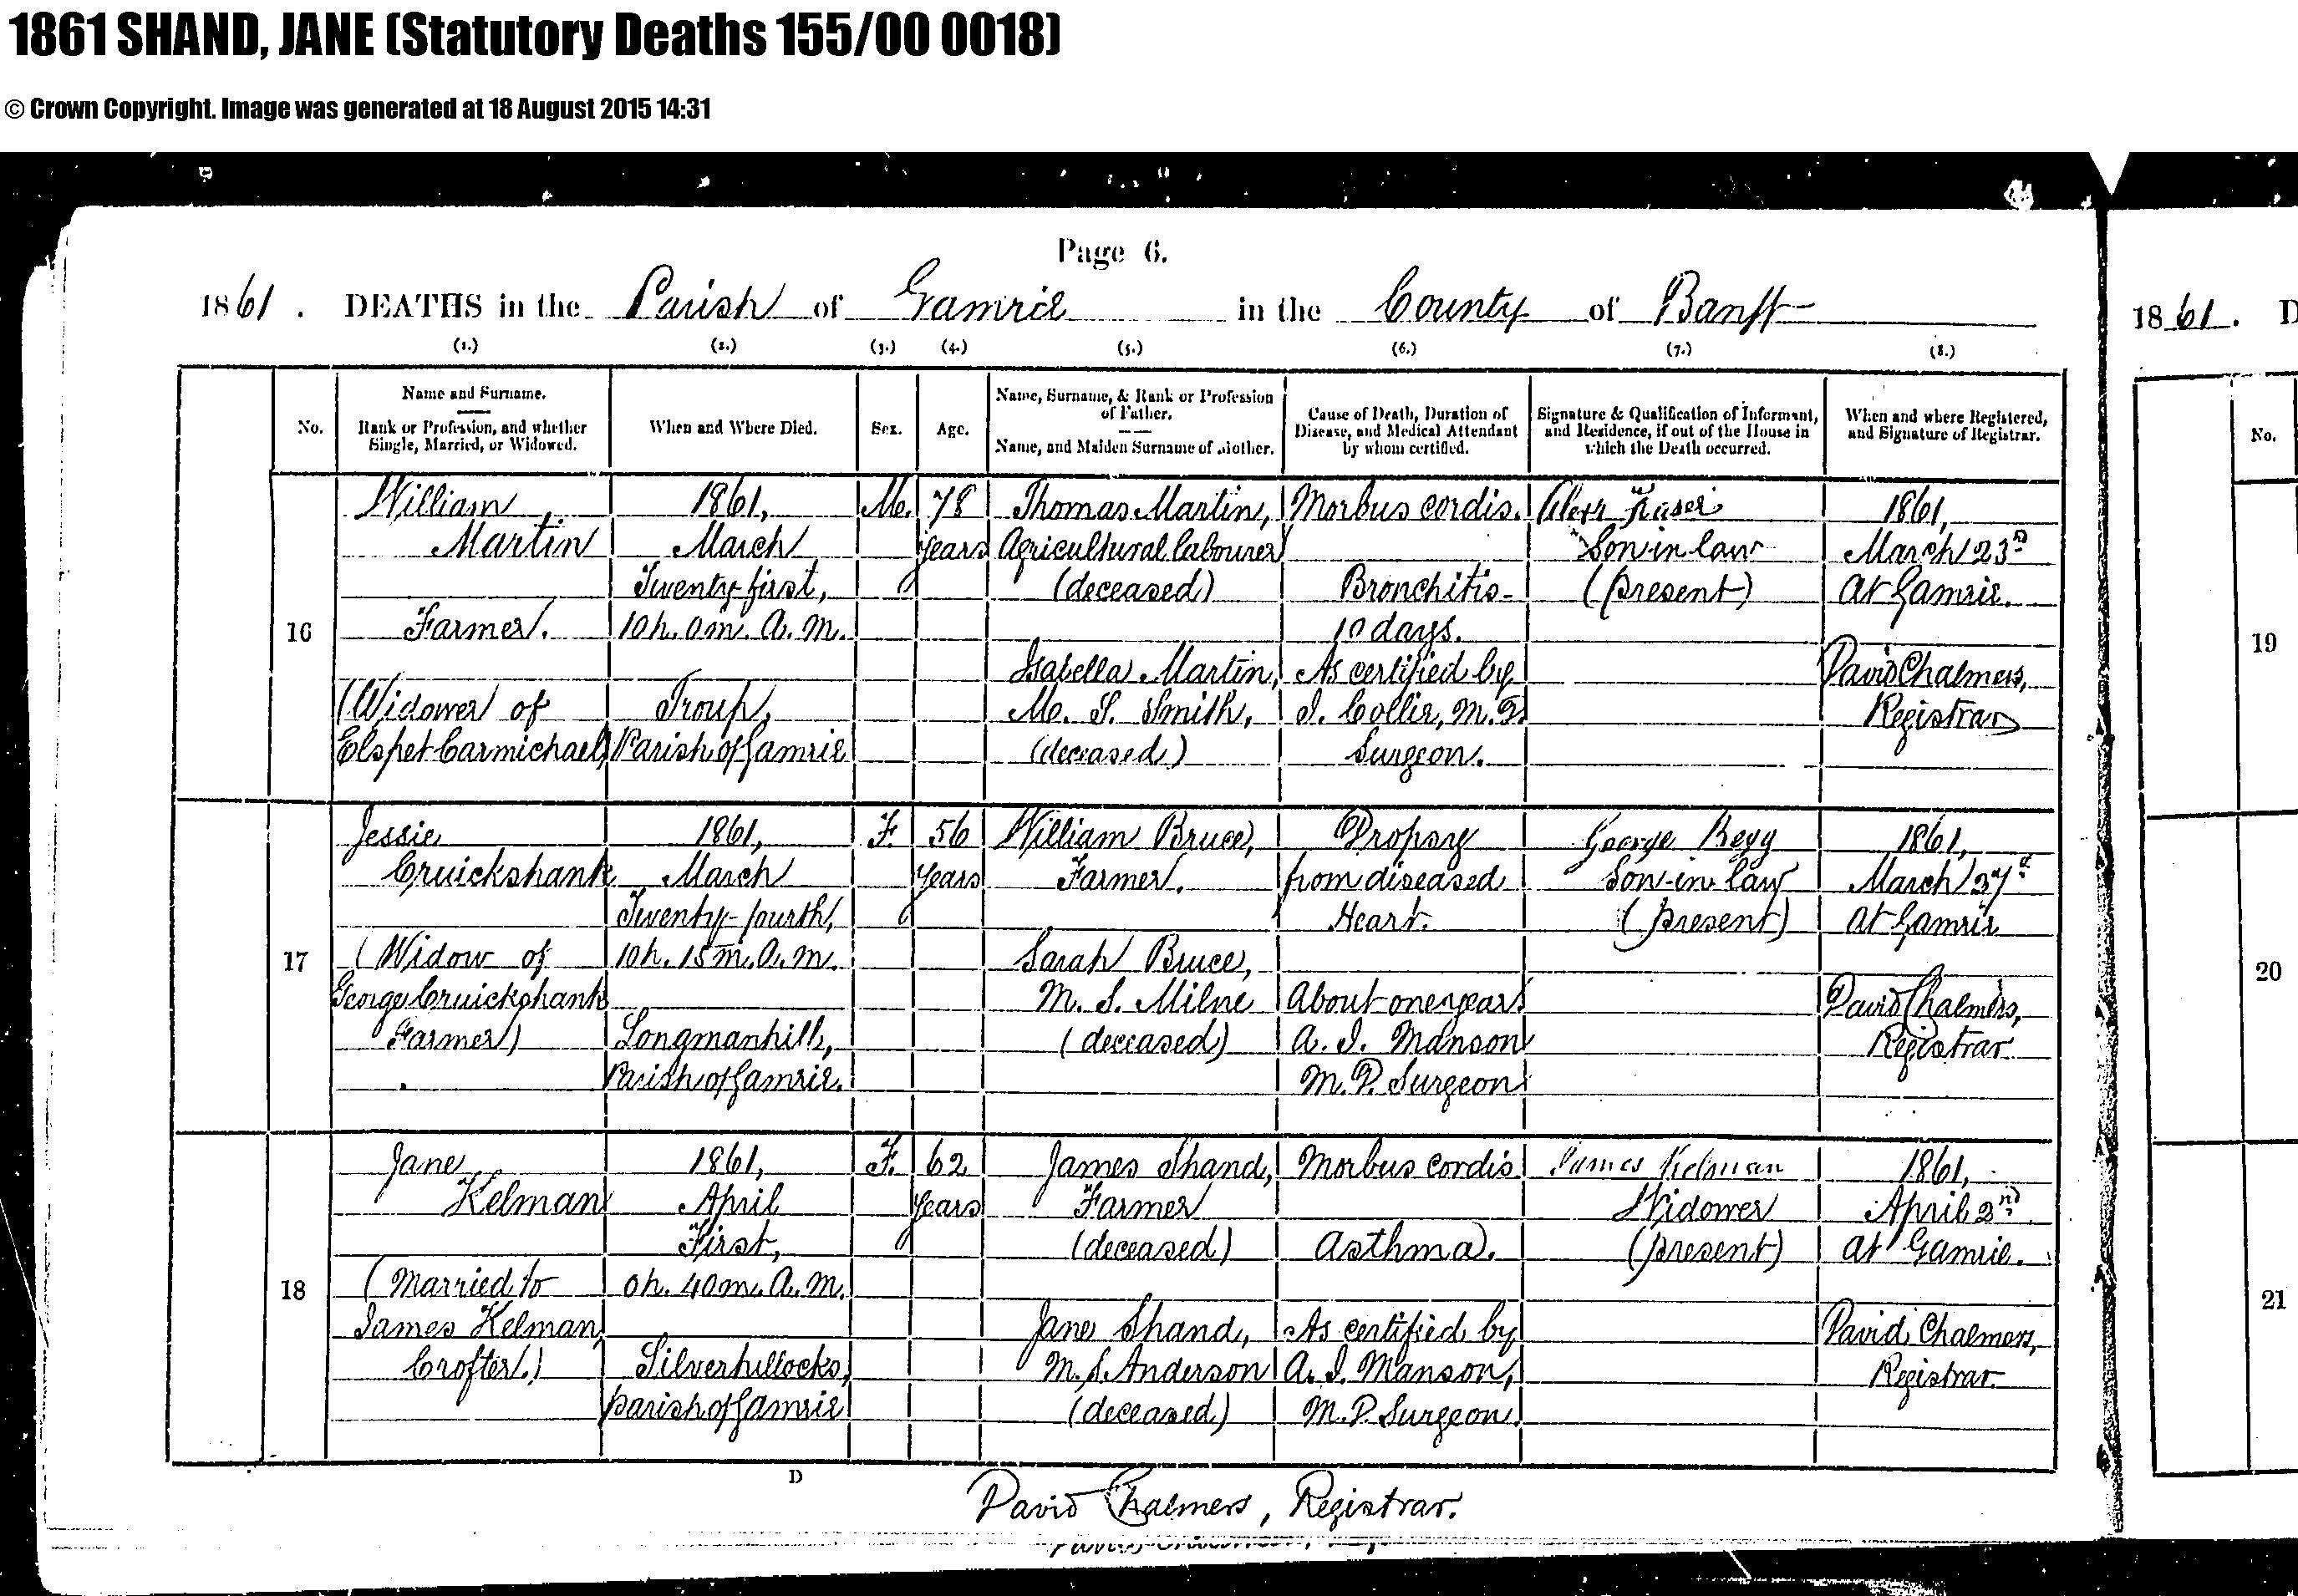 1861 SHAND, JANE (Statutory Deaths 155/00 0018)
© Crown Copyright. Image was generated at 18 August 2015 14:31
Page 6.
1861. DEATHS in the Parish of Gamrie in the County of Banff
(1.) (2.) (3.) (4.) (5.) (6.) (7.) (8.)
No.
Name and Surname.
Rank or Profession, and whether
Single, Married, or Widowed.
When and Where Died.
Sex.
Age.
Name, Surname, & Rank or Profession
of Father.
Name, and Maiden Surname of Mother.
Cause of Death, Duration of
Disease, and Medical Attendant
by whom certified.
Signature & Qualification of Informant,
and Residence, if out of the House in
which the Death occurred.
When and where Registered,
and Signature of Registrar.
16
William
Martin
Farmer.
(Widower of
Elspet Carmichael)
1861,
March
Twenty-first,
10 h. 0 m. A. M.
Troup,
Parish of Gamrie
M.
78
years
Thomas Martin,
Agricultural labourer
(deceased)
Isabella Martin,
M. S. Smith,
(deceased)
Morbus cordis.
Bronchitis
10 days.
As certified by
J. Collie, M. D.
Surgeon.
Alexr Fraser
Son in law
(present)
1861,
March 23rd
At Gamrie.
David Chalmers,
Registrar
17
Jessie
Cruickshank
(Widow of
George Cruickshank
Farmer)
1861,
March
Twenty-fourth,
10 h. 15 m. A. M.
Longmanhill,
Parish of Gamrie.
F.
56
years
William Bruce,
Farmer.
Sarah Bruce,
M. S. Milne
(deceased)
Dropsy
from diseased
Heart.
About one year
A. J. Manson
M. D. Surgeon
George Begg
Son-in law
(present)
1861,
March 27th
At Gamrie
David Chalmers,
Registrar
18
Jane
Kelman
(Married to
James Kelman,
Crofter.)
1861,
April
First,
0 h. 40 m. A. M.
Silverhillocks,
parish of Gamrie
F.
62
years
James Shand,
Farmer
(deceased)
Jane Shand,
M. S. Anderson
(deceased)
Morbus cordis
Asthma.
As certified by
A. J. Manson,
M. D. Surgeon.
James Kelman
Widower
(present)
1861,
April 2nd
At Gamrie.
David Chalmers,
Registrar
D
David Chalmers, Registrar.
1861. D
No.
19
20
21